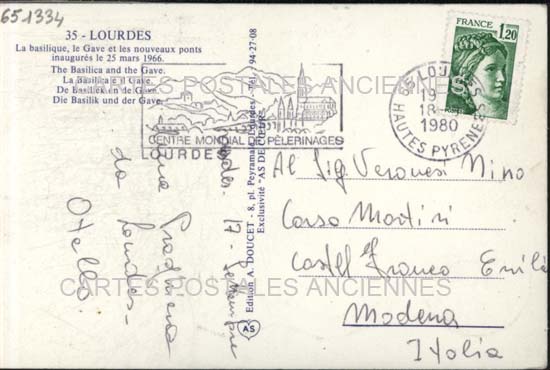 651334
35 - LOURDES
La basilique, le Gave et les nouveaux ponts
inaugurés le 25 mars 1966.
The Basilica and the Gave.
La basilica e il Gave.
De Basiliek en de Gave.
Die Basilik und der Gave.
CENTRE MONDIAL DE PÈLERINAGES
LOURDES
FRANCE
1,20
65 LOURDES
18
1980
HAUTES PYRENEES
CARTES POSTALES ANCIENNES
Edition A. DOUCET - 8, pl. Peyramale, Lourdes - Tél. 94-27-08
Exclusivité "AS DE CŒUR"
AS
Lourdes. 17 - Settembre
Una Preghiera
da Lourdes -
Otello
Al Sig. Veronesi Nino
Corso Martiri
Castel Franco Emilia
CARTES POSTALES ANCIENNES
Modena
Italia